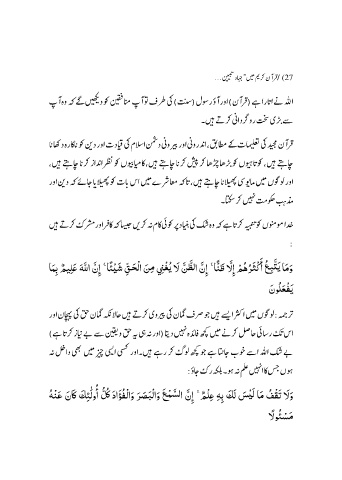 27) القرآن کریم میں "جہاد تبیین...
اللہ نے اتارا ہے (قرآن) اور آؤ رسول (سنت) کی طرف تو آپ منافقین کو دیکھیں گے کہ وہ آپ
سے بڑی سخت رو گردانی کرتے ہیں۔
قرآن مجید کی تعلیمات کے مطابق، اندرونی اور بیرونی دشمن اسلام کی قیادت اور دین کو ناکارہ دکھانا
چاہتے ہیں، کوتاہیوں کو بڑھا چڑھا کر پیش کرنا چاہتے ہیں، کامیابیوں کو نظر انداز کرنا چاہتے ہیں،
اور لوگوں میں مایوسی پھیلانا چاہتے ہیں، تاکہ معاشرے میں اس بات کو پھیلایا جائے کہ دین اور
مذہب حکومت نہیں کر سکتا۔
خدا مومنوں کو تنبیہ کرتا ہے کہ وہ شک کی بنیاد پر کوئی کام نہ کریں جیسا کہ کافر اور مشرک کرتے ہیں
:
وَمَا يَتَّبِعُ أَكْثَرُهُمْ إِلَّا ظَنًّا ۚ إِنَّ الظَّنَّ لَا يُغْنِي مِنَ الْحَقِّ شَيْئًا ۚ إِنَّ اللَّهَ عَلِيمٌ بِمَا
يَفْعَلُونَ
ترجمہ: لوگوں میں اکثر ایسے ہیں جو صرف گمان کی پیروی کرتے ہیں حالانکہ گمان حق کی پہچان اور
اس تک رسائی حاصل کرنے میں کچھ فائدہ نہیں دیتا (اور نہ ہی یہ حق و یقین سے بے نیاز کرتا ہے)
بے شک اللہ اسے خوب جانتا ہے جو کچھ لوگ کر رہے ہیں۔ اور کسی ایسی چیز میں بھی داخل نہ
ہوں جس کا انہیں علم نہ ہو۔ بلکہ رک جاؤ:
وَلَا تَقْفُ مَا لَيْسَ لَكَ بِهِ عِلْمٌ ۚ إِنَّ السَّمْعَ وَالْبَصَرَ وَالْفُؤَادَ كُلُّ أُولَٰئِكَ كَانَ عَنْهُ
مَسْئُولًا